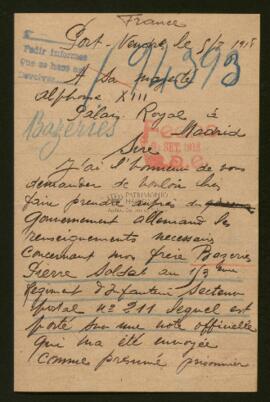 France
Port-Vendres, le 5/9 1915
Pedir informes
que se hace est
Devolver
124393
A Sa majesté
Alphonse XIII
Palais Royal à
Madrid
Bazerres
SET. 1915
Sire
J'ai l'honneur de vous
demander de vouloir bien
faire prendre auprès du
Gouvernement allemand les
renseignements necessaires
concernant mon frère Bazerres
Pierre Soldat au
Regiment d'Infanterie Secteur
postal nº 211 lequel est
porté sur une note officielle
qui m'a été envoyée
comme présumé prisonnier